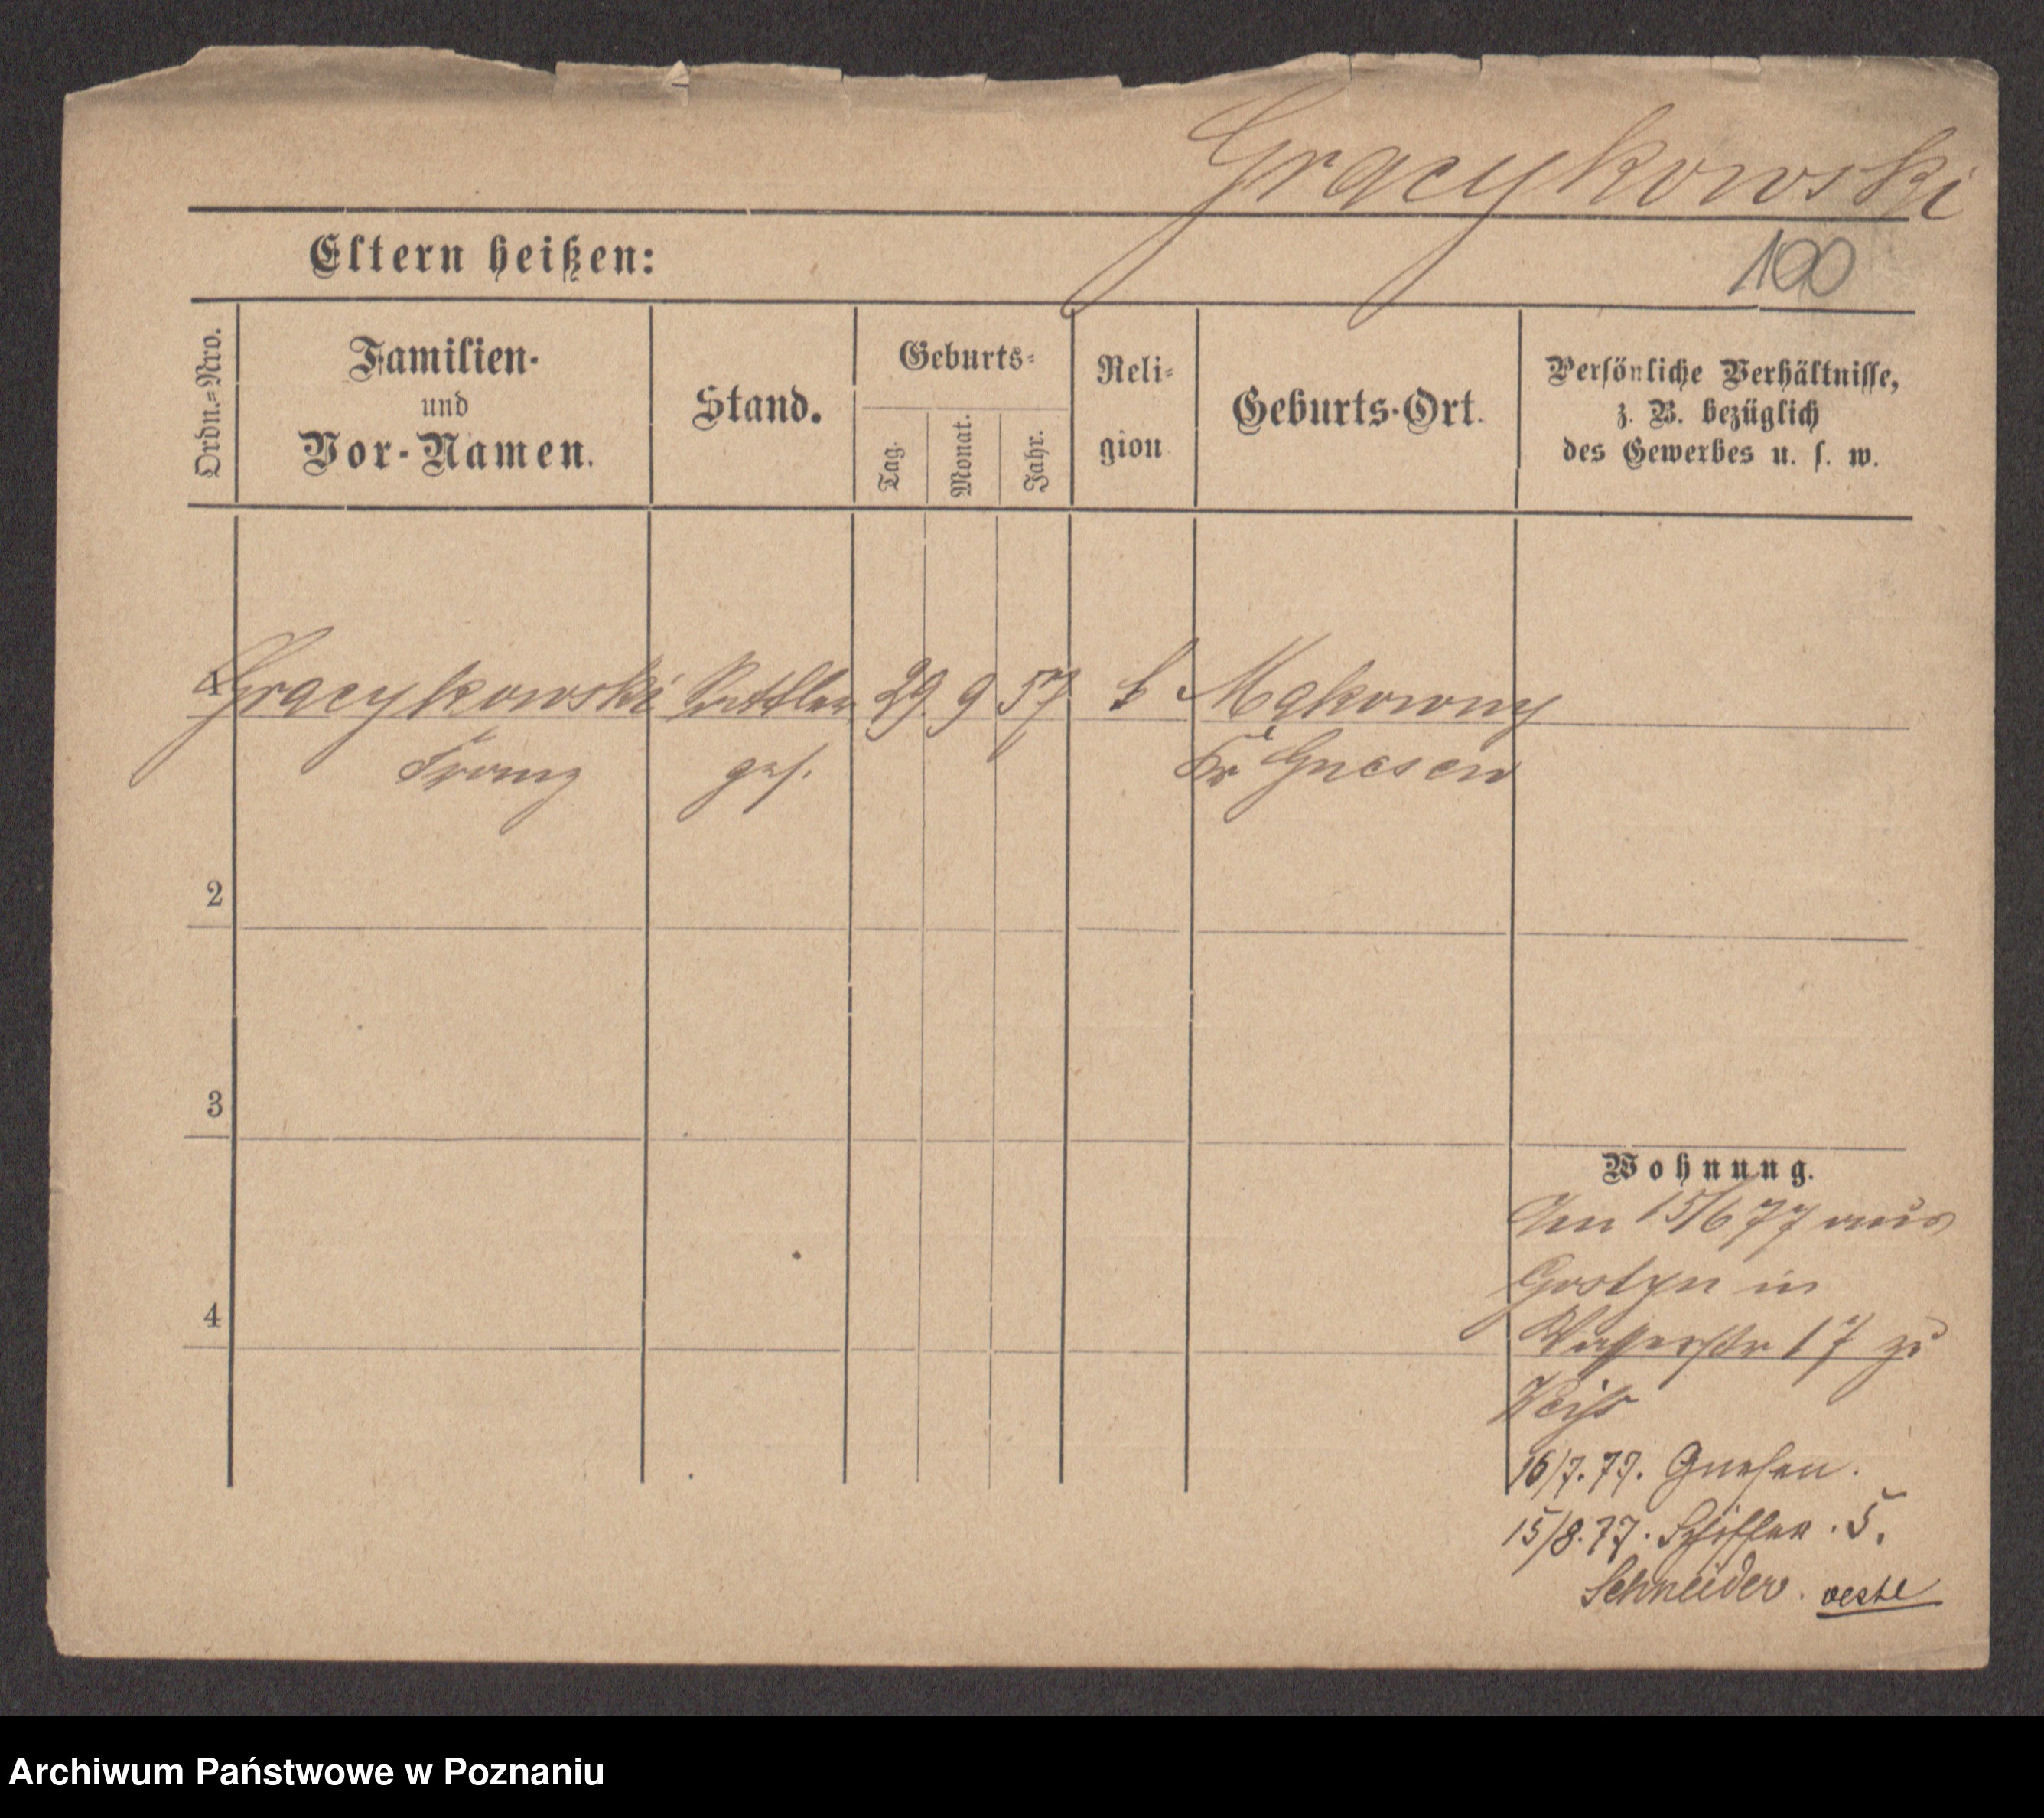 Gracykowski
Eltern heißen:
100
Ordn.=Nro.
Familien-
und
Vor-Namen.
Stand.
Geburts-
Tag.
Monat.
Jahr.
Reli-
gion
Geburts-Ort.
Persönliche Verhältnisse,
z. B. bezüglich
des Gewerbes u. s. w.
1 Gracykowski Sattler 29 9 57 k Mąkowny
Franz ges. Kr Gnesen
2
3
Wohnung.
Am 15/6 77 aus
Gostyn in
4
Wasserstr 17 zu
Weiß
16/7. 77. Gnesen.
15/8. 77. 5.
Schneider.
Archiwum Państwowe w Poznaniu